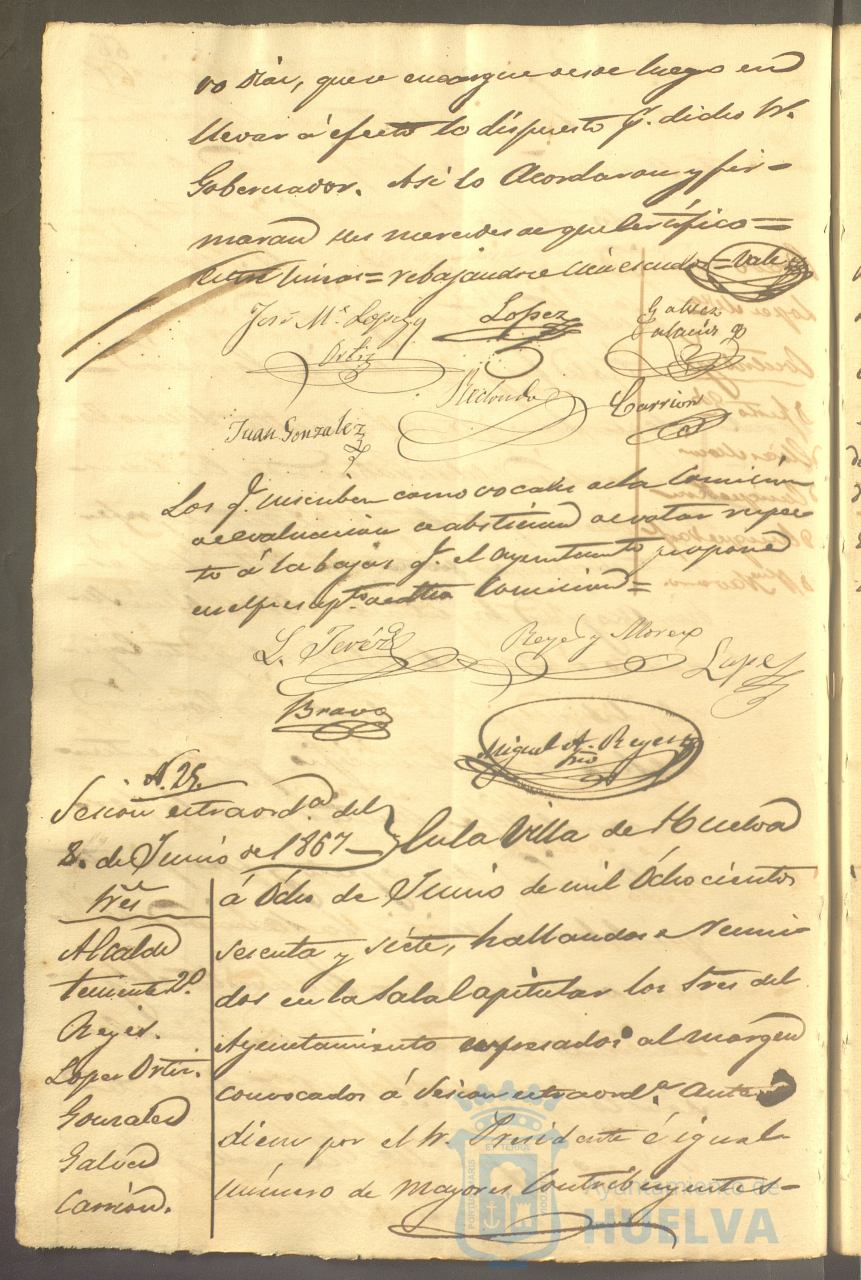 vo Diaz, que se encargue desde luego en
llevar á efecto lo dispuesto pr. dicho Sr.
Gobernador. Así lo Acordaron y fir=
maran sus mercedes de que Certifico=
= rebajandose = Vale
José Ma. Lopez y
Ortiz
Lopez
Galvez
Palacios
Juan Gonzalez
Redondo
Carrion
Los q. suscriben como vocales de la Comision
de evaluacion se abstienen de votar respec
to á la baja q. el Ayuntamiento propone
en el presupto. de dha Comision=
L. Jeréz
Reyes y Moreno
Lopez
Bravo
Miguel A. Reyes
Srio
N. 25.
Sesion estraorda. del
8. de Junio de 1867
Sres
Alcalde
Teniente 2º.
Reyes.
Lopez Ortiz.
Gonzalez
Galvez
Carrion.
En la Villa de Huelva
á Ocho de Junio de mil Ochocientos
sesenta y siete, hallandose Reuni-
dos en la Sala Capitular los Sres del
Ayuntamiento expresados al margen
convocados á Sesion estraorda. ante
diem por el Sr. Presidente é igual
número de mayores Contribuyentes=
PORTUS MARIS
ET TERRAE
CUSTODIA
Ayuntamiento de
HUELVA